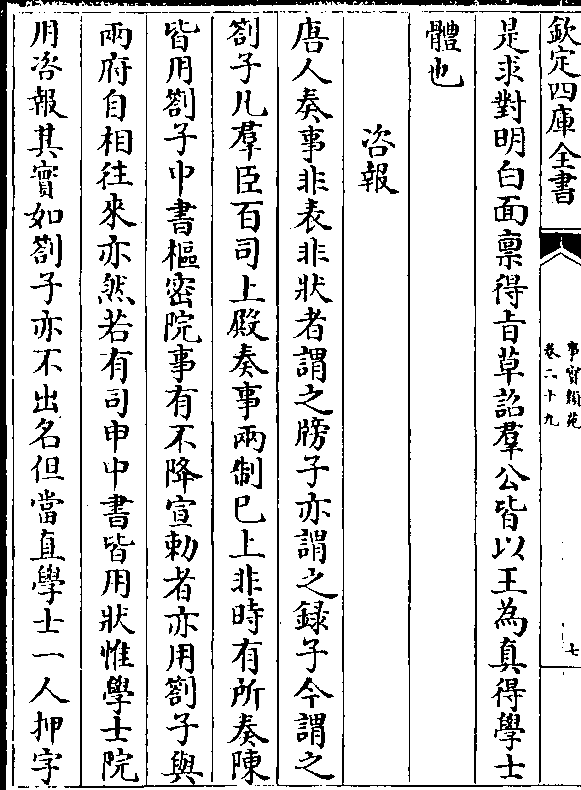 欽定四庫全書
事實類苑
卷二十九
七
是求對明白面禀得㫖草詔羣公皆以王為真得學士
體也
咨報
唐人奏事非表非狀者謂之牓子亦謂之録子今謂之
劄子凡羣臣百司上殿奏事兩制巳上非時有所奏陳
皆用劄子中書樞密院事有不降宣勅者亦用劄子與
兩府自相往來亦然若有司申中書皆用狀惟學士院
用咨報其實如劄子亦不出名但當直學士一人押字